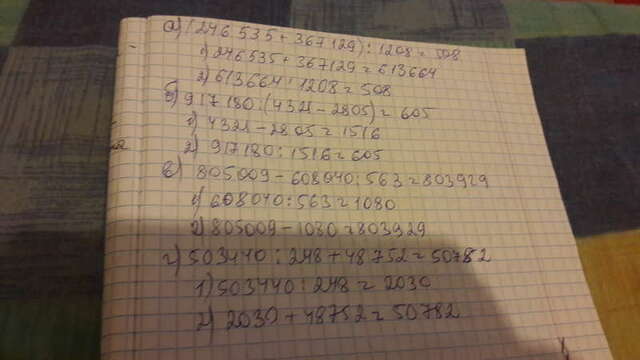 а) (246 535 + 367 129) : 1208 = 508
1) 246535 + 367129 = 613664
2) 613664 : 1208 = 508
б) 917180 : (4321 - 2805) = 605
1) 4321 - 2805 = 1516
2) 917180 : 1516 = 605
в) 805009 - 608040 : 563 = 803929
1) 608040 : 563 = 1080
2) 805009 - 1080 = 803929
г) 503440 : 248 + 48752 = 50782
1) 503440 : 248 = 2030
2) 2030 + 48752 = 50782